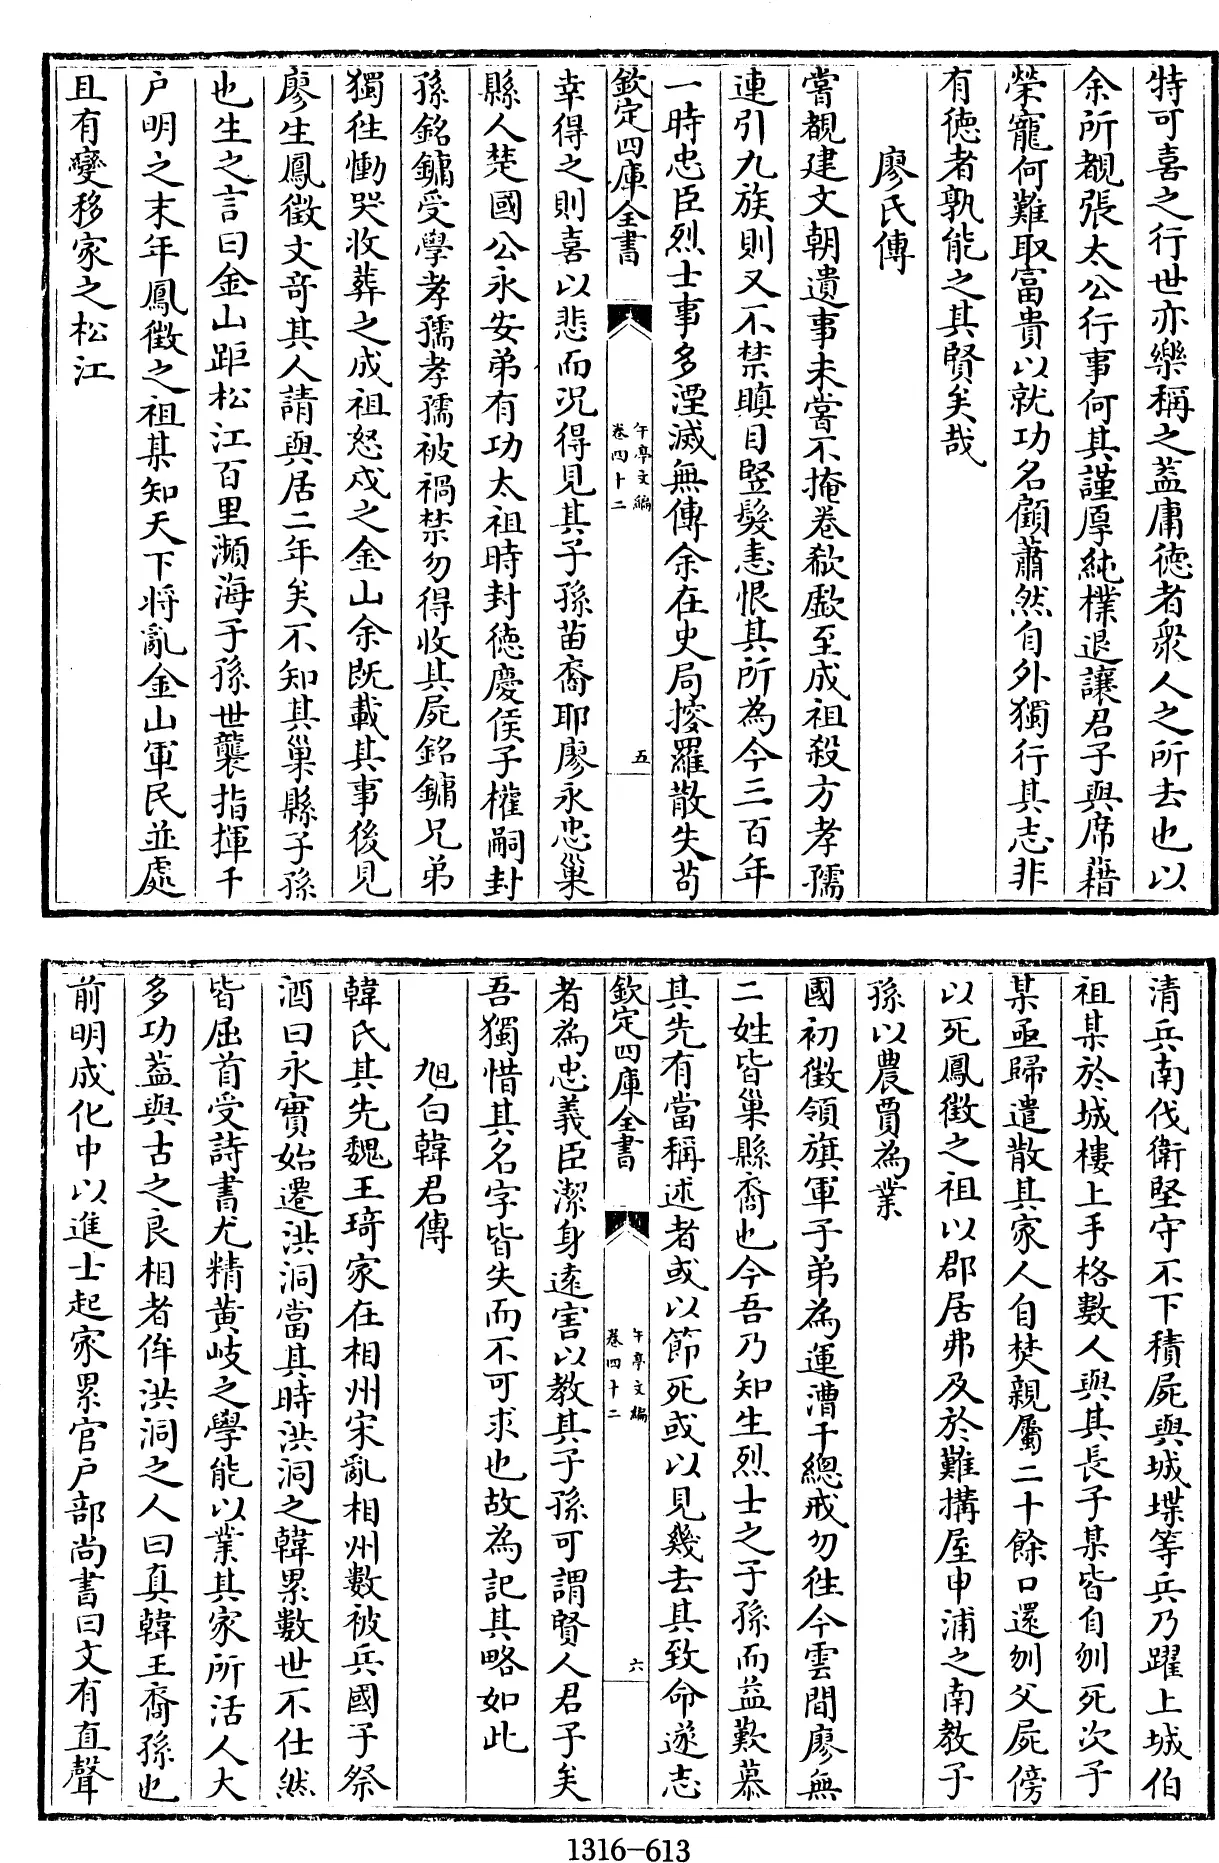 特可喜之行世亦樂稱之蓋庸德者衆人之所去也以
余所覩張太公行事何其謹厚純樸退讓君子與席藉
榮寵何難取富貴以就功名顧蕭然自外獨行其志非
有德者孰能之其賢矣哉
廖氏傳
嘗覩建文朝遺事未嘗不掩卷欷歔至成祖殺方孝孺
連引九族則又不禁瞋目竪髮恚恨其所為今三百年
一時忠臣烈士事多湮滅無傳余在史局搜羅散失苟
欽定四庫全書
午亭文編
卷四十二
五
幸得之則喜以悲而況得見其子孫苗裔耶廖永忠巢
縣人楚國公永安弟有功太祖時封德慶侯子權嗣封
孫銘鏞受學孝孺孝孺被禍禁勿得收其屍銘鏞兄弟
獨徃慟哭收葬之成祖怒戍之金山余既載其事後見
廖生鳳徵文竒其人請與居二年矣不知其巢縣子孫
也生之言曰金山距松江百里瀕海子孫世襲指揮千
户明之末年鳳徵之祖某知天下將亂金山軍民並處
且有變移家之松江
清兵南伐衛堅守不下積屍與城堞等兵乃躍上城伯
祖某於城樓上手格數人與其長子某皆自刎死次子
某亟歸遣散其家人自焚親屬二十餘口還刎父屍傍
以死鳳徵之祖以郡居弗及於難搆屋申浦之南教子
孫以農賈為業
國初徵領旗軍子弟為運漕千總戒勿徃今雲間廖無
二姓皆巢縣裔也今吾乃知生烈士之子孫而益歎慕
其先有當稱述者或以節死或以見幾去其致命遂志
欽定四庫全書
午亭文編
卷四十二
六
者為忠義臣潔身遠害以教其子孫可謂賢人君子矣
吾獨惜其名字皆失而不可求也故為記其略如此
旭白韓君傳
韓氏其先魏王琦家在相州宋亂相州數被兵國子祭
酒曰永實始遷洪洞當其時洪洞之韓累數世不仕然
皆屈首受詩書尤精黄岐之學能以業其家所活人大
多功蓋與古之良相者侔洪洞之人曰真韓王裔孫也
前明成化中以進士起家累官户部尚書曰文有直聲
1316-613